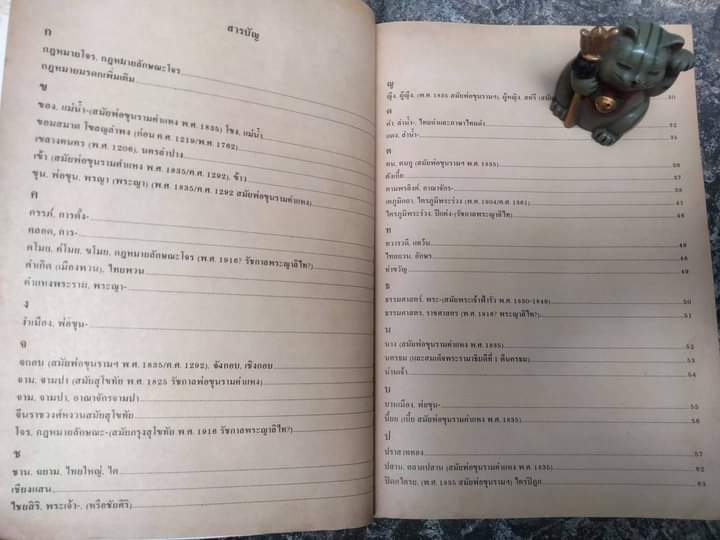 สารบัญ
ก
กฎหมายโจร, กฎหมายลักษณะโจร
กฎหมายมรดกเพิ่มเติม
ข
ของ, แม่น้ำ-(สมัยพ่อขุนรามคำแหง พ.ศ. 1835) โขง, แม่น้ำ
ขอมสมาด โขลญลำพง (ก่อน ค.ศ. 1219/พ.ศ. 1762)
เขลางคนคร (พ.ศ. 1206), นครลำปาง
เข้า (สมัยพ่อขุนรามคำแหง พ.ศ. 1835/ค.ศ. 1292), ข้าว
ขุน, พ่อขุน, พรญา (พระญา) (พ.ศ. 1835/ค.ศ. 1292 สมัยพ่อขุนรามคำแหง)
ค
ครรภ์, การตั้ง-
คลอด, การ-
คโมย, ค่โมย, ขโมย, กฎหมายลักษณะโจร (พ.ศ. 1916? รัชกาลพระญาลิไท?)
คำเกิด (เมืองพวน), ไทยพวน
คำแหงพระราม, พระญา-
ง
งำเมือง, พ่อขุน-
จ
จกอบ (สมัยพ่อขุนรามฯ พ.ศ. 1835/ค.ศ. 1292), จังกอบ, เชิงกอบ
จาม, จามปา (สมัยสุโขทัย พ.ศ. 1825 รัชกาลพ่อขุนรามคำแหง)
จาม, จามปา, อาณาจักรจามปา
จีนราชวงศ์หงวนสมัยสุโขทัย
โจร, กฎหมายลักษณะ-(สมัยกรุงสุโขทัย พ.ศ. 1916 รัชกาลพระญาลิไท?)
ช
ชาน, ฉยาม, ไทยใหญ่, ไต
เชียงแสน
ไชยสิริ, พระเจ้า-, (หรือชัยศิริ)
ญ
ญิง, ผู้ญิง, (พ.ศ. 1835 สมัยพ่อขุนรามฯ), ผู้หญิง, สตรี (สมัย 30
ด
ดำ, ลำน้ำ-, ไทยดำและภาษาไทยดำ 32
แดง, ลำน้ำ- 35
ต
ตน, ตนกู (สมัยพ่อขุนรามฯ พ.ศ. 1835) 36
ตังเกี๋ย 37
ตามพรลิงค์, อาณาจักร- 38
เตภูมิกถา, ไตรภูมิพระร่วง (พ.ศ. 1904/ค.ศ. 1361) 41
ไตรภูมิพระร่วง, ปีแต่ง-(รัชกาลพระญาลิไท) 46
ท
ทวารวดี, แคว้น 48
ไทยยวน, อักษร 48
ทำขวัญ 49
ธ
ธรรมศาสตร์, พระ-(สมัยพระเจ้าฟ้ารั่ว พ.ศ. 1830-1849) 50
ธรรมศาสตร, ราชศาสตร (พ.ศ. 1916? พระญาลิไท?) 51
น
นาง (สมัยพ่อขุนรามคำแหง พ.ศ. 1835) 52
นครธม (และสมเด็จพระรามาธิบดีที่ 1 ตีนครธม) 53
น่านเจ้า 54
บ
บานเมือง, พ่อขุน- 55
เบี้ย (เบี้ย สมัยพ่อขุนรามคำแหง พ.ศ. 1835) 56
ป
ปราสาททอง 57
ปสาน, ตลาดปสาน (สมัยพ่อขุนรามคำแหง พ.ศ. 1835) 62
ปิดกไตรย, (พ.ศ. 1835 สมัยพ่อขุนรามฯ) ไตรปิฎก 63